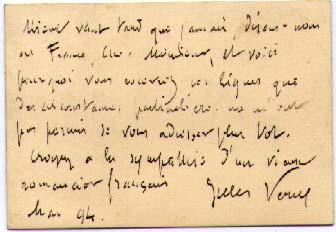 Mieux vaut tard que jamais, disons-nous
en France, cher Monsieur, et voici
pourquoi vous recevrez ces lignes que
des circonstances particulières ne m'ont
pas permis de vous adresser plus tôt.
Croyez à la sympathie d'un vieux
romancier français
Jules Verne
94.